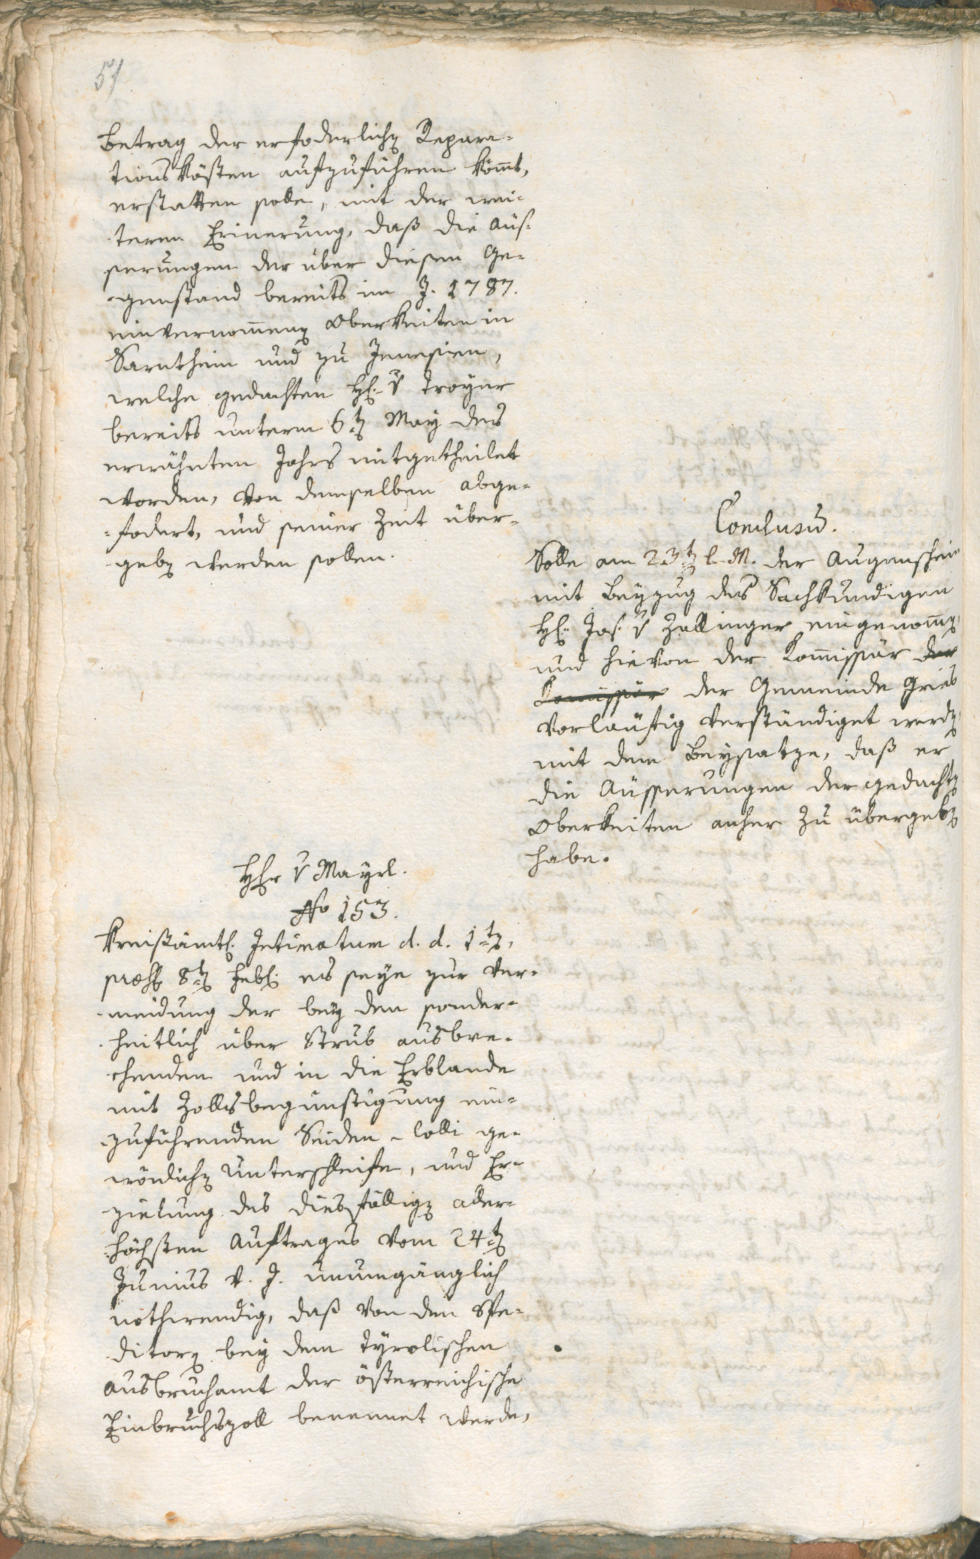 51
Betrag der erfoderlichen Repara-
tions kösten aufzuführen kömt,
erstatten solle, mit der wei-
teren Erinerung, daß die Äus-
serungen der über diesen Ge-
genstand bereits im J. 1787.
einvernommenen Oberkeiten in
Sarnthein und zu Jenesien,
welche gedachten H. v Troyer
bereits unterm 6ten May des
erwähnten Jahrs mitgetheilet
worden, von demselben abge-
fodert, und seiner Zeit über-
geben werden sollen.
Conclusum.
Solle am 23ten l. M. der Augenschein
mit Beyzug des Sachkundigen
H. Jos. v Zallinger eingenommen
und hievon der Kommissär der
Kommissär der Gemeinde Gries
vorläufig verständiget werden
mit dem Beysatze, daß er
die Äusserungen der gedachten
Oberkeiten anher zu übergeben
habe.
Hr v Mayrl.
No 153.
Kreisämtl. Intimatum d. d. 1ten,
præs. 8ten Feb. es seye zur Ver-
meidung der bey den sonder-
heitlich über Strub ausbre-
chenden und in die Erblande
mit Zollsbegünstigung ein-
zuführenden Seiden-Colli ge-
wönlichen Unterschleife, und Er-
zielung des diesfälligen aller-
höchsten Auftrages vom 24ten
Junius v. J. unumgänglich
nothwendig, daß von den Spe-
ditoren bey dem tyrolischen
Ausbruchamt der österreichische
Einbruchszoll benennet werde,